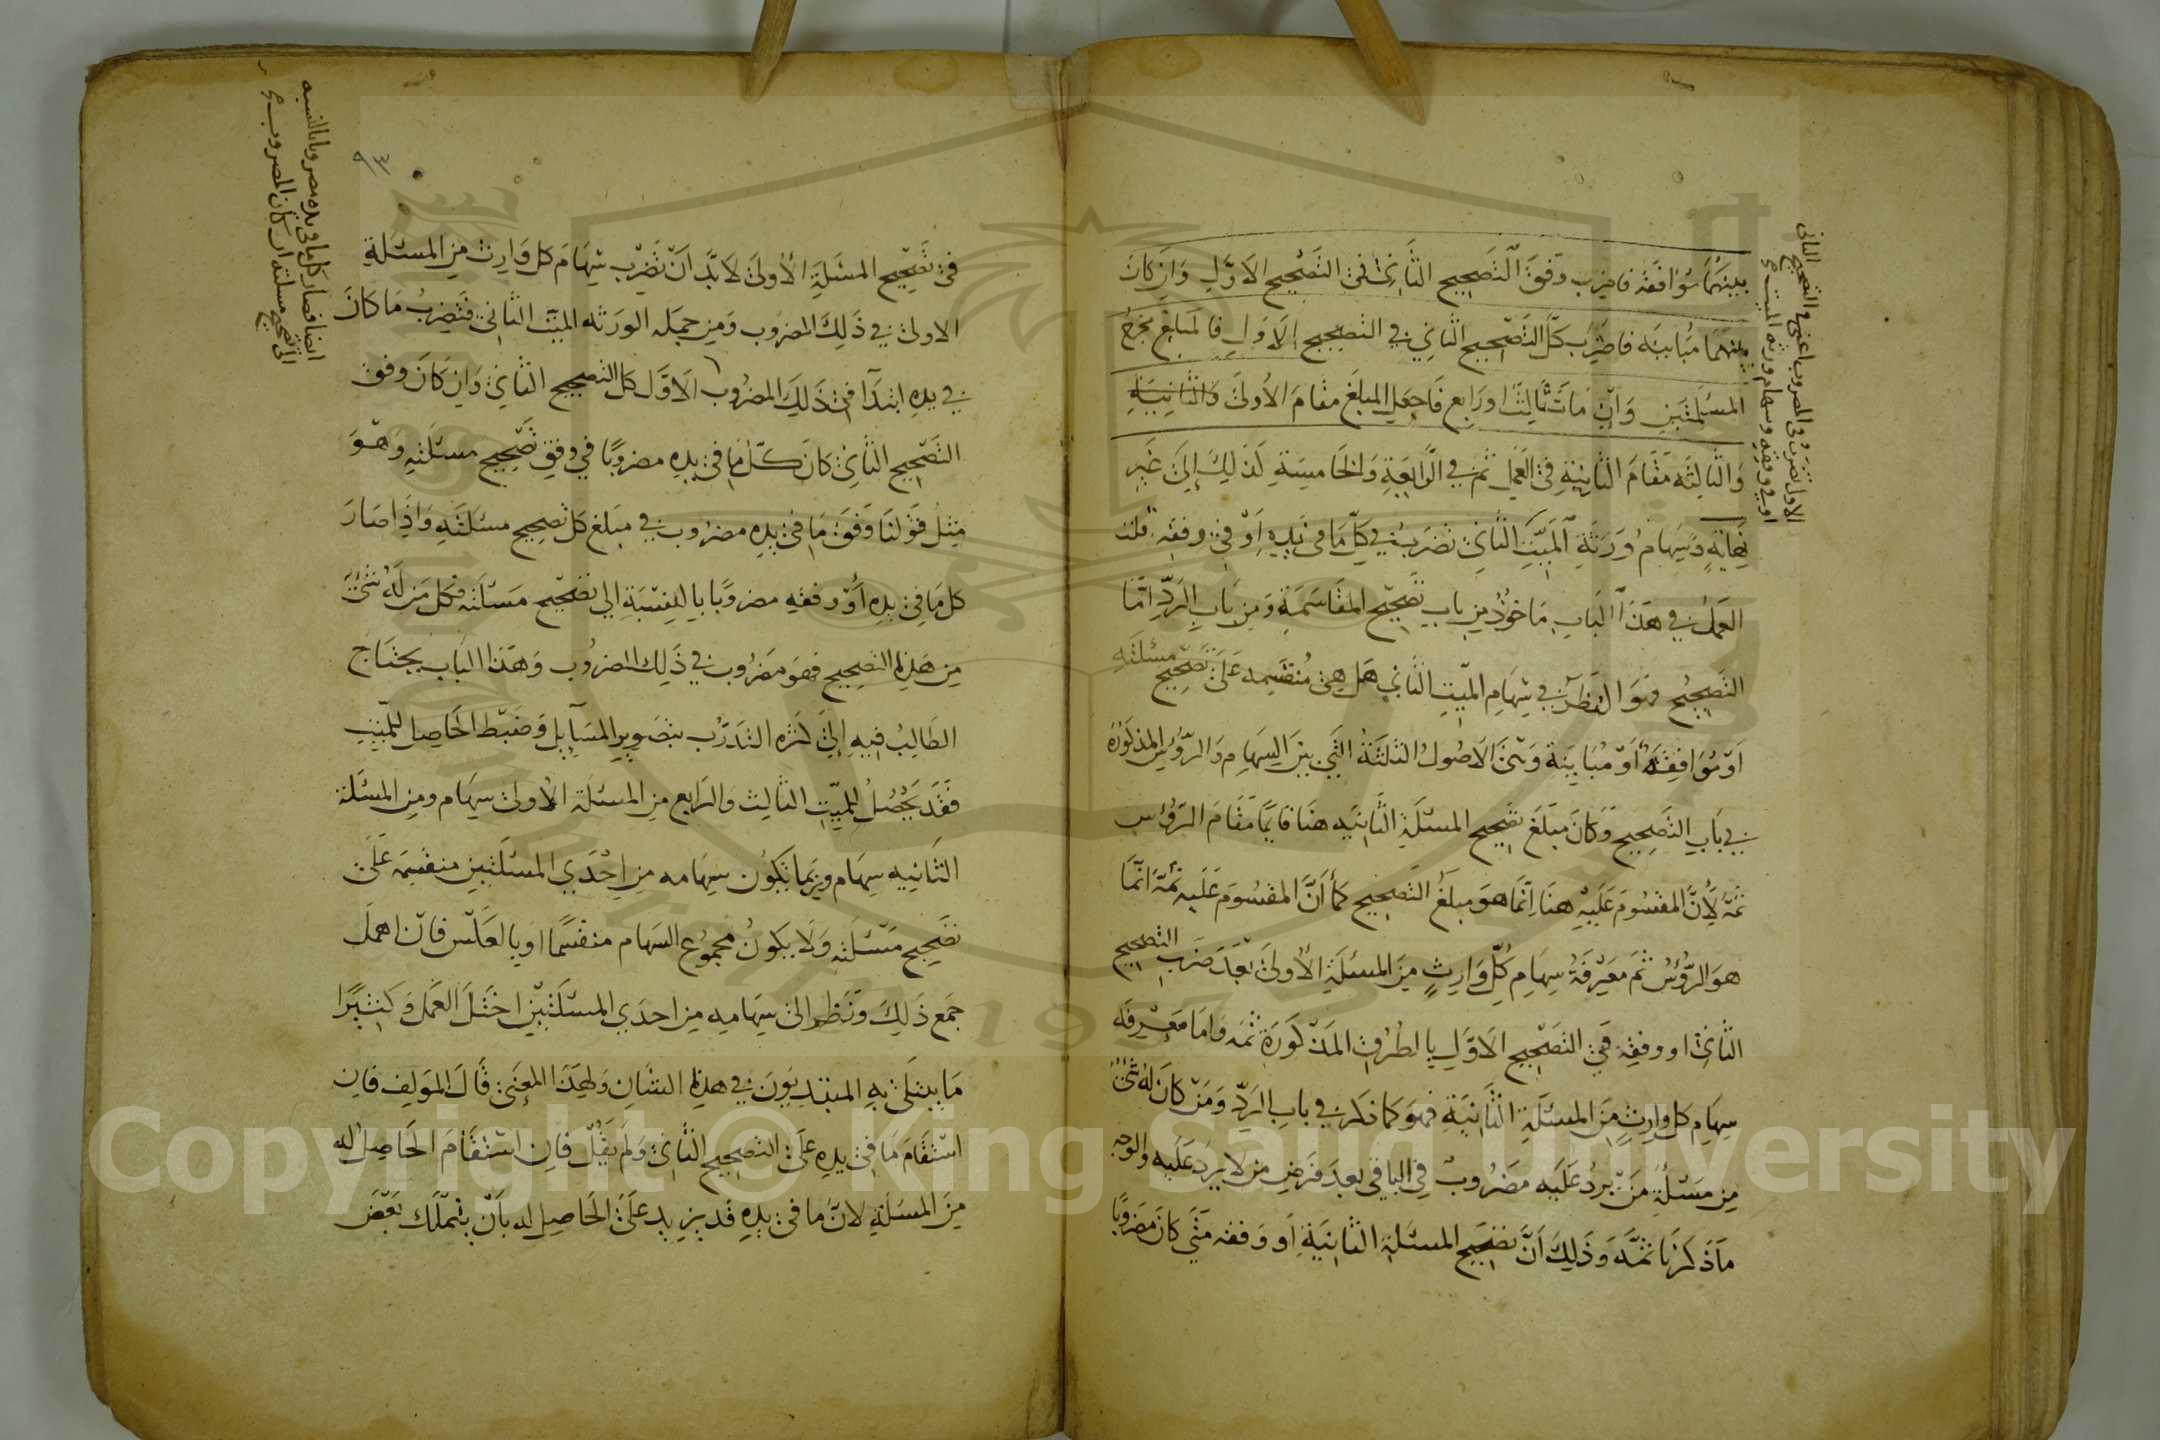 بينهما موافقة فاضرب وفق التصحيح الثاني في التصحيح الاول وان كان
بينهما مباينة فاضرب كل التصحيح الثاني في التصحيح الاول فالمبلغ مخرج
المسئلتين وان مات ثالث او رابع فاجعل المبلغ مقام الاولى والثانية
والثالثة مقام الثانية في العمل ثم في الرابعة والخامسة كذلك إلى غير
نهاية وسهام ورثة الميت الثاني تضرب في كل ما في يده او في وفقه قلت
العمل في هذا الباب ماخوذ من باب تصحيح المقاسمة ومن باب الرد اما
التصحيح فهو النظر في سهام الميت الثاني هل هي منقسمه على تصحيح مسئلته
او موافقة او مباينة وهي الاصول الثلثة التي بين السهام والرؤس المذكورة
في باب التصحيح وكان مبلغ تصحيح المسئلة الثانيه هنا قايما مقام الرؤس
ثمه لأن المقسوم عليه هنا إنما هو مبلغ التصحيح كما أن المقسوم عليه ثمة انما
هو الرؤس ثم معرفة سهام كل وارث من المسئلة الأولى بعد ضرب التصحيح
الثاني او وفقه في التصحيح الاول بالطرق المذكورة ثمه واما معرفة
سهام كل وارث من المسئلة الثانية فهو كما ذكر في باب الرد ومن كان له شئ
من مسئلة من يرد عليه مضروب في الباقي بعد فرض من لا يرد عليه والوجه
ما ذكرنا ثمه وذلك أن تصحيح المسئلة الثانية او وفقه متى كان مضروبا
الاول تضرب في المضروب اعني في التصحيح الثاني
او في وفقه وسهام ورثة الميت
٩٣
في تصحيح المسئلة الأولى لا بد ان تضرب سهام كل وارث من المسئلة
الاولى في ذلك المضروب ومن جمله الورثه الميت الثاني فتضرب ما كان
في يده ابتدآ في ذلك المضروب الاول كل التصحيح الثاني وان كان وفق
التصحيح الثاني كان كل ما في يده مضروبا في وفق تصحيح مسئلته وهو
مثل قولنا وفق ما في يده مضروب في مبلغ كل تصحيح مسئلته واذا صار
كل ما في يده أو وفقه مضروبا بالنسبة الى تصحيح مسئلته فكل من له شئ
من هذه التصحيح فهو مضروب في ذلك المضروب وهذا الباب يحتاج
الطالب فيه إلى كثره التدرب بتصوير المسآيل وضبط الحاصل للميت
فقد يحصل للميت الثالث والرابع من المسئلة الاولى سهام ومن المسئلة
الثانيه سهام وربما تكون سهامه من احدي المسئلتين منقسمة على
تصحيح مسئلته ولا يكون مجموع السهام منقسما او بالعكس فان اهمل
جمع ذلك ونظر الى سهامه من احدي المسئلتين اختل العمل وكثيرا
ما يبتلى به المبتديون في هذه الشان ولهذا المعنى قال المولف فان
استقام ما في يده على التصحيح الثاني ولم يقل فان استقام الحاصل له
من المسئلة لان ما في يده قد يزيد على الحاصل له بأن يتملك بعض
ايضا فصار كل ما في يده مضروبا بالنسبه
الى تصحيح مسئلته ان كان المضروب